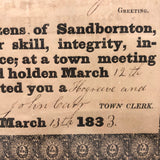 GREETING.
zens of Sandbornton,
r skill, integrity, in-
ce; at a town meeting
d holden March 12th
ted you a Hogreeve and
John Carr TOWN CLERK.
March 13th 1833.